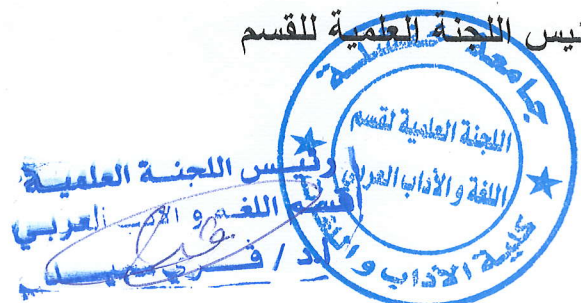 رئيس اللجنة العلمية للقسم
جامعة
اللجنة العلمية لقسم
اللغة و الآداب العربي
كلية الآداب و
رئيس اللجنة العلمية
قسم اللغة و الأدب العربي
أ.د /